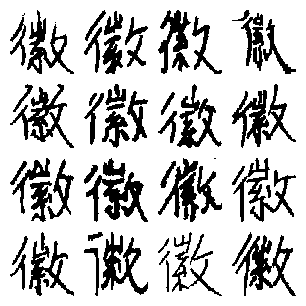 徽徽徽徽
徽徽徽徽
徽徽徽徽
徽徽徽徽